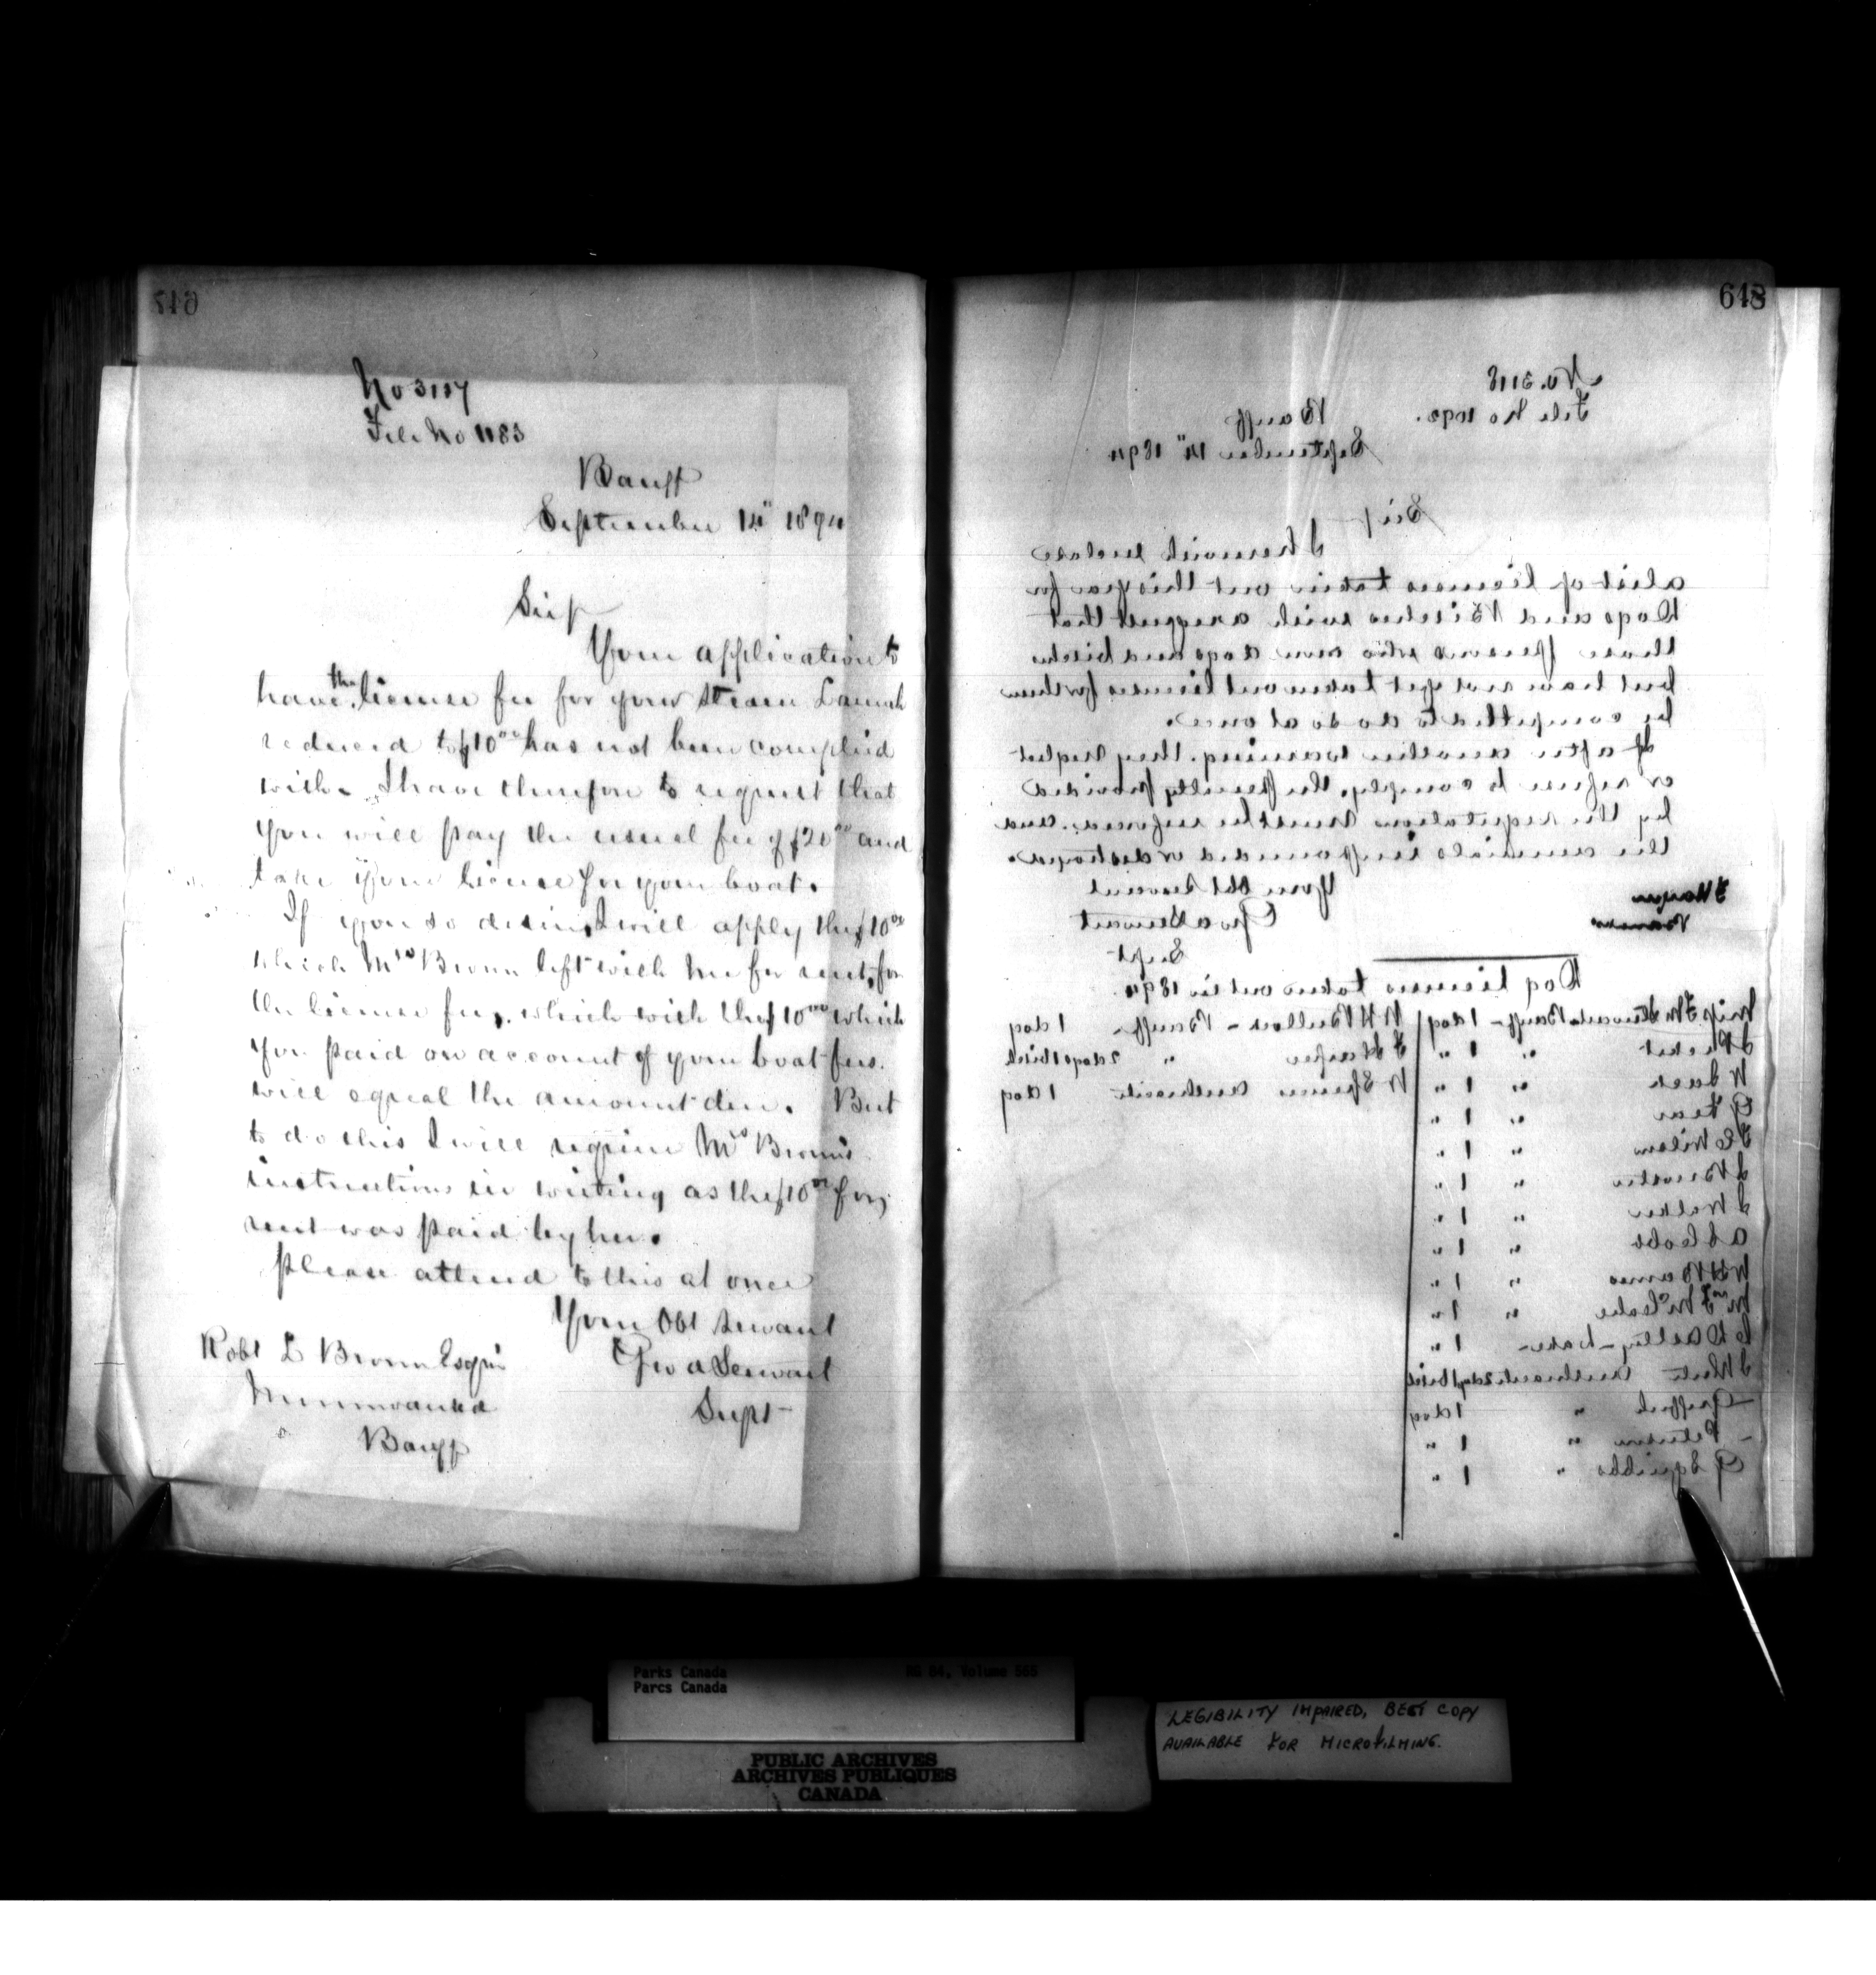 647
No 3117
File No 1183
Banff
September 14" 1894
Sir/
Your application to
have the license fee for your steam Launch
reduced to $10 00 has not been complied
with. I have therefore to request that
you will pay the usual fee of $20 00 and
take your license for your boat.
If you so desire, I will apply the $10 00
which Mrs Brown left with me for rent, for
the license fee, which with the $10 00 which
you paid on account of your boat fees.
will equal the amount due. But
to do this I will require Mrs Brown's
instructions in writing as the $10 00 for
rent was paid by her.
Please attend to this at once
Your Obt Servant
Geo A Stewart
Supt
Robt L Brown Esquire
Minnewanka
Banff
648
No. 3118
File No 1092.
Banff
September 14" 1894
Sir/
I herewith enclose
a list of licenses taken out this year for
Dogs and Bitches with a request that
those persons who own dogs and bitches
but have not yet taken out licenses for them
be compelled to do so at once.
If after another warning, they neglect
or refuse to comply, the penalty provided
by the regulations must be enforced, and
the animals impounded or destroyed.
Your Obt Servant
Geo A Stewart
Supt
J Harper
Banff
Dog licenses taken out in 1894.
Miss F M Stewart Banff - 1 dog
" 1 "
W Jack " 1 "
G Fear " 1 "
J C Wilson " 1 "
J Brewster " 1 "
J Walker " 1 "
" 1 "
W H Barnes " 1 "
Mrs F McCabe " 1 "
1 "
J White Anthracite 2 dogs 1 bitch
- Griffith " 1 dog
- Peterson " 1 "
G Squibbs " 1 "
W H Bullock - Banff - 1 dog
J Harper " 2 dogs 1 bitch
W Anthracite 1 dog
Parks Canada
Parcs Canada
RG 84, Volume 565
PUBLIC ARCHIVES
ARCHIVES PUBLIQUES
CANADA
LEGIBILITY IMPAIRED, BEST COPY
AVAILABLE FOR MICROFILMING.